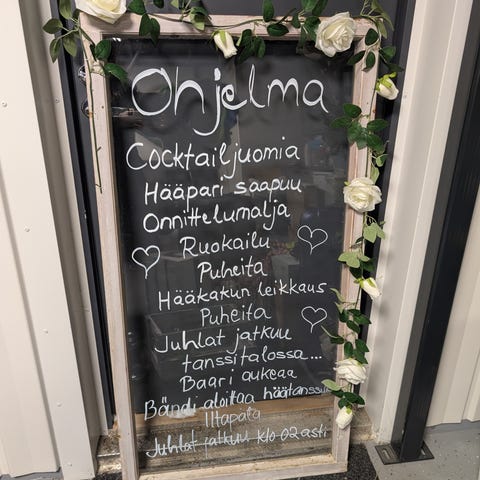 Ohjelma
Cocktailjuomia
Hääpari saapuu
Onnittelumalja
Ruokailu
Puheita
Hääkakun leikkaus
Puheita
Juhlat jatkuu
tanssitalossa...
Baari aukeaa
Bändi aloittaa häätanssi
Iltapala
Juhlat jatkuu klo 02 asti